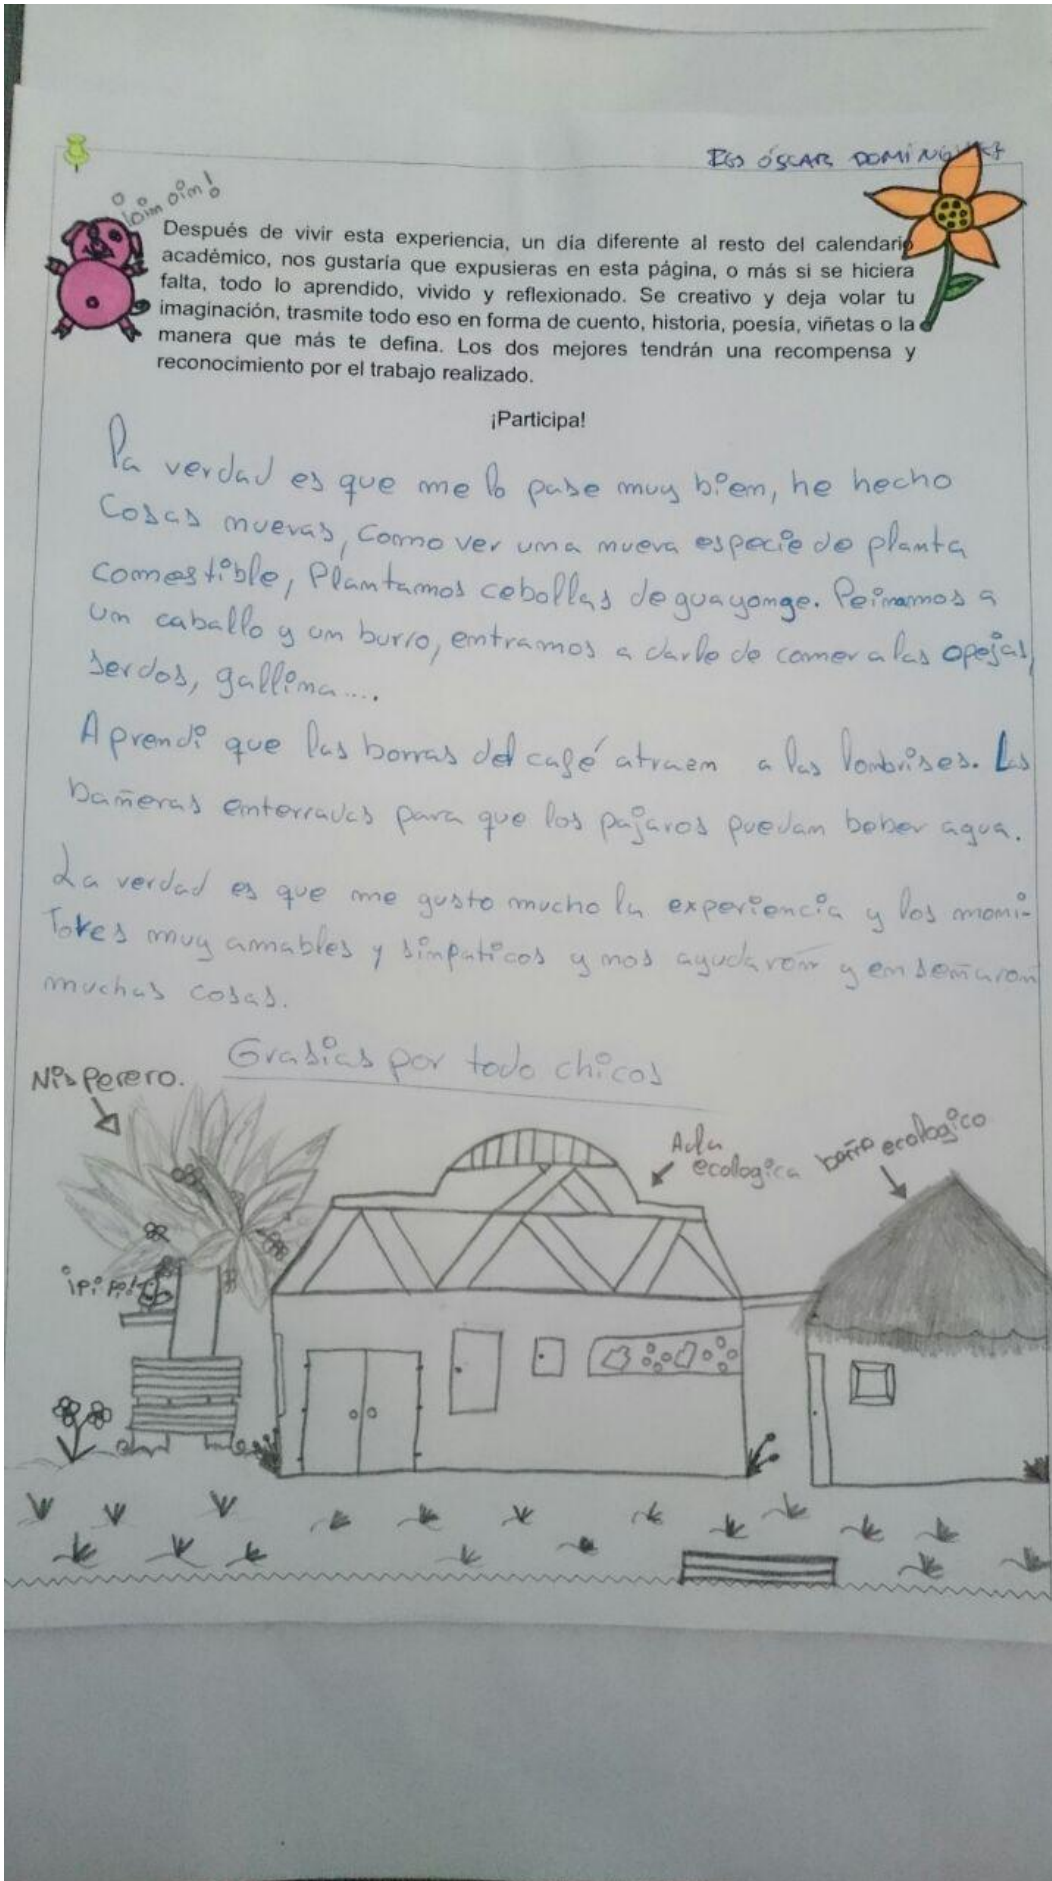 IES ÓSCAR DOMÍNGUEZ
¡oim oim!
Después de vivir esta experiencia, un día diferente al resto del calendario
académico, nos gustaría que expusieras en esta página, o más si se hiciera
falta, todo lo aprendido, vivido y reflexionado. Se creativo y deja volar tu
imaginación, trasmite todo eso en forma de cuento, historia, poesía, viñetas o la
manera que más te defina. Los dos mejores tendrán una recompensa y
reconocimiento por el trabajo realizado.
¡Participa!
La verdad es que me lo pase muy bien, he hecho
Cosas nuevas, Como ver una nueva especie de planta
comestible, Plantamos cebollas de guayonge. Peinamos a
un caballo y un burro, entramos a darle de comer a las opejas,
serdos, gallina....
Aprendi que las borras del café atraen a las lombrises. Las
bañeras enterradas para que los pajaros puedan beber agua.
La verdad es que me gusto mucho la experiencia y los moni-
Tores muy amables y simpaticos y nos ayudaron y enseñaron
muchas cosas.
Grasias por todo chicos
Nisperero.
Aula
ecologica
baño ecologico
¡Pi Pi!